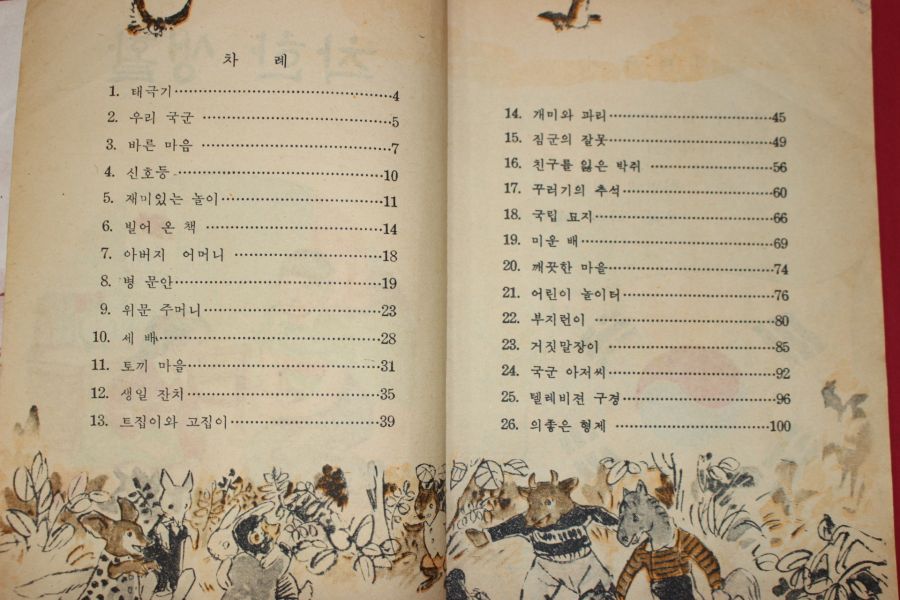 차 례
1. 태극기 4
2. 우리 국군 5
3. 바른 마음 7
4. 신호등 10
5. 재미있는 놀이 11
6. 빌어 온 책 14
7. 아버지 어머니 18
8. 병 문안 19
9. 위문 주머니 23
10. 세 배 28
11. 토끼 마을 31
12. 생일 잔치 35
13. 트집이와 고집이 39
14. 개미와 파리 45
15. 짐군의 잘못 49
16. 친구를 잃은 박쥐 56
17. 꾸러기의 추석 60
18. 국립 묘지 66
19. 미운 배 69
20. 깨끗한 마을 74
21. 어린이 놀이터 76
22. 부지런이 80
23. 거짓말장이 85
24. 국군 아저씨 92
25. 텔레비젼 구경 96
26. 의좋은 형제 100